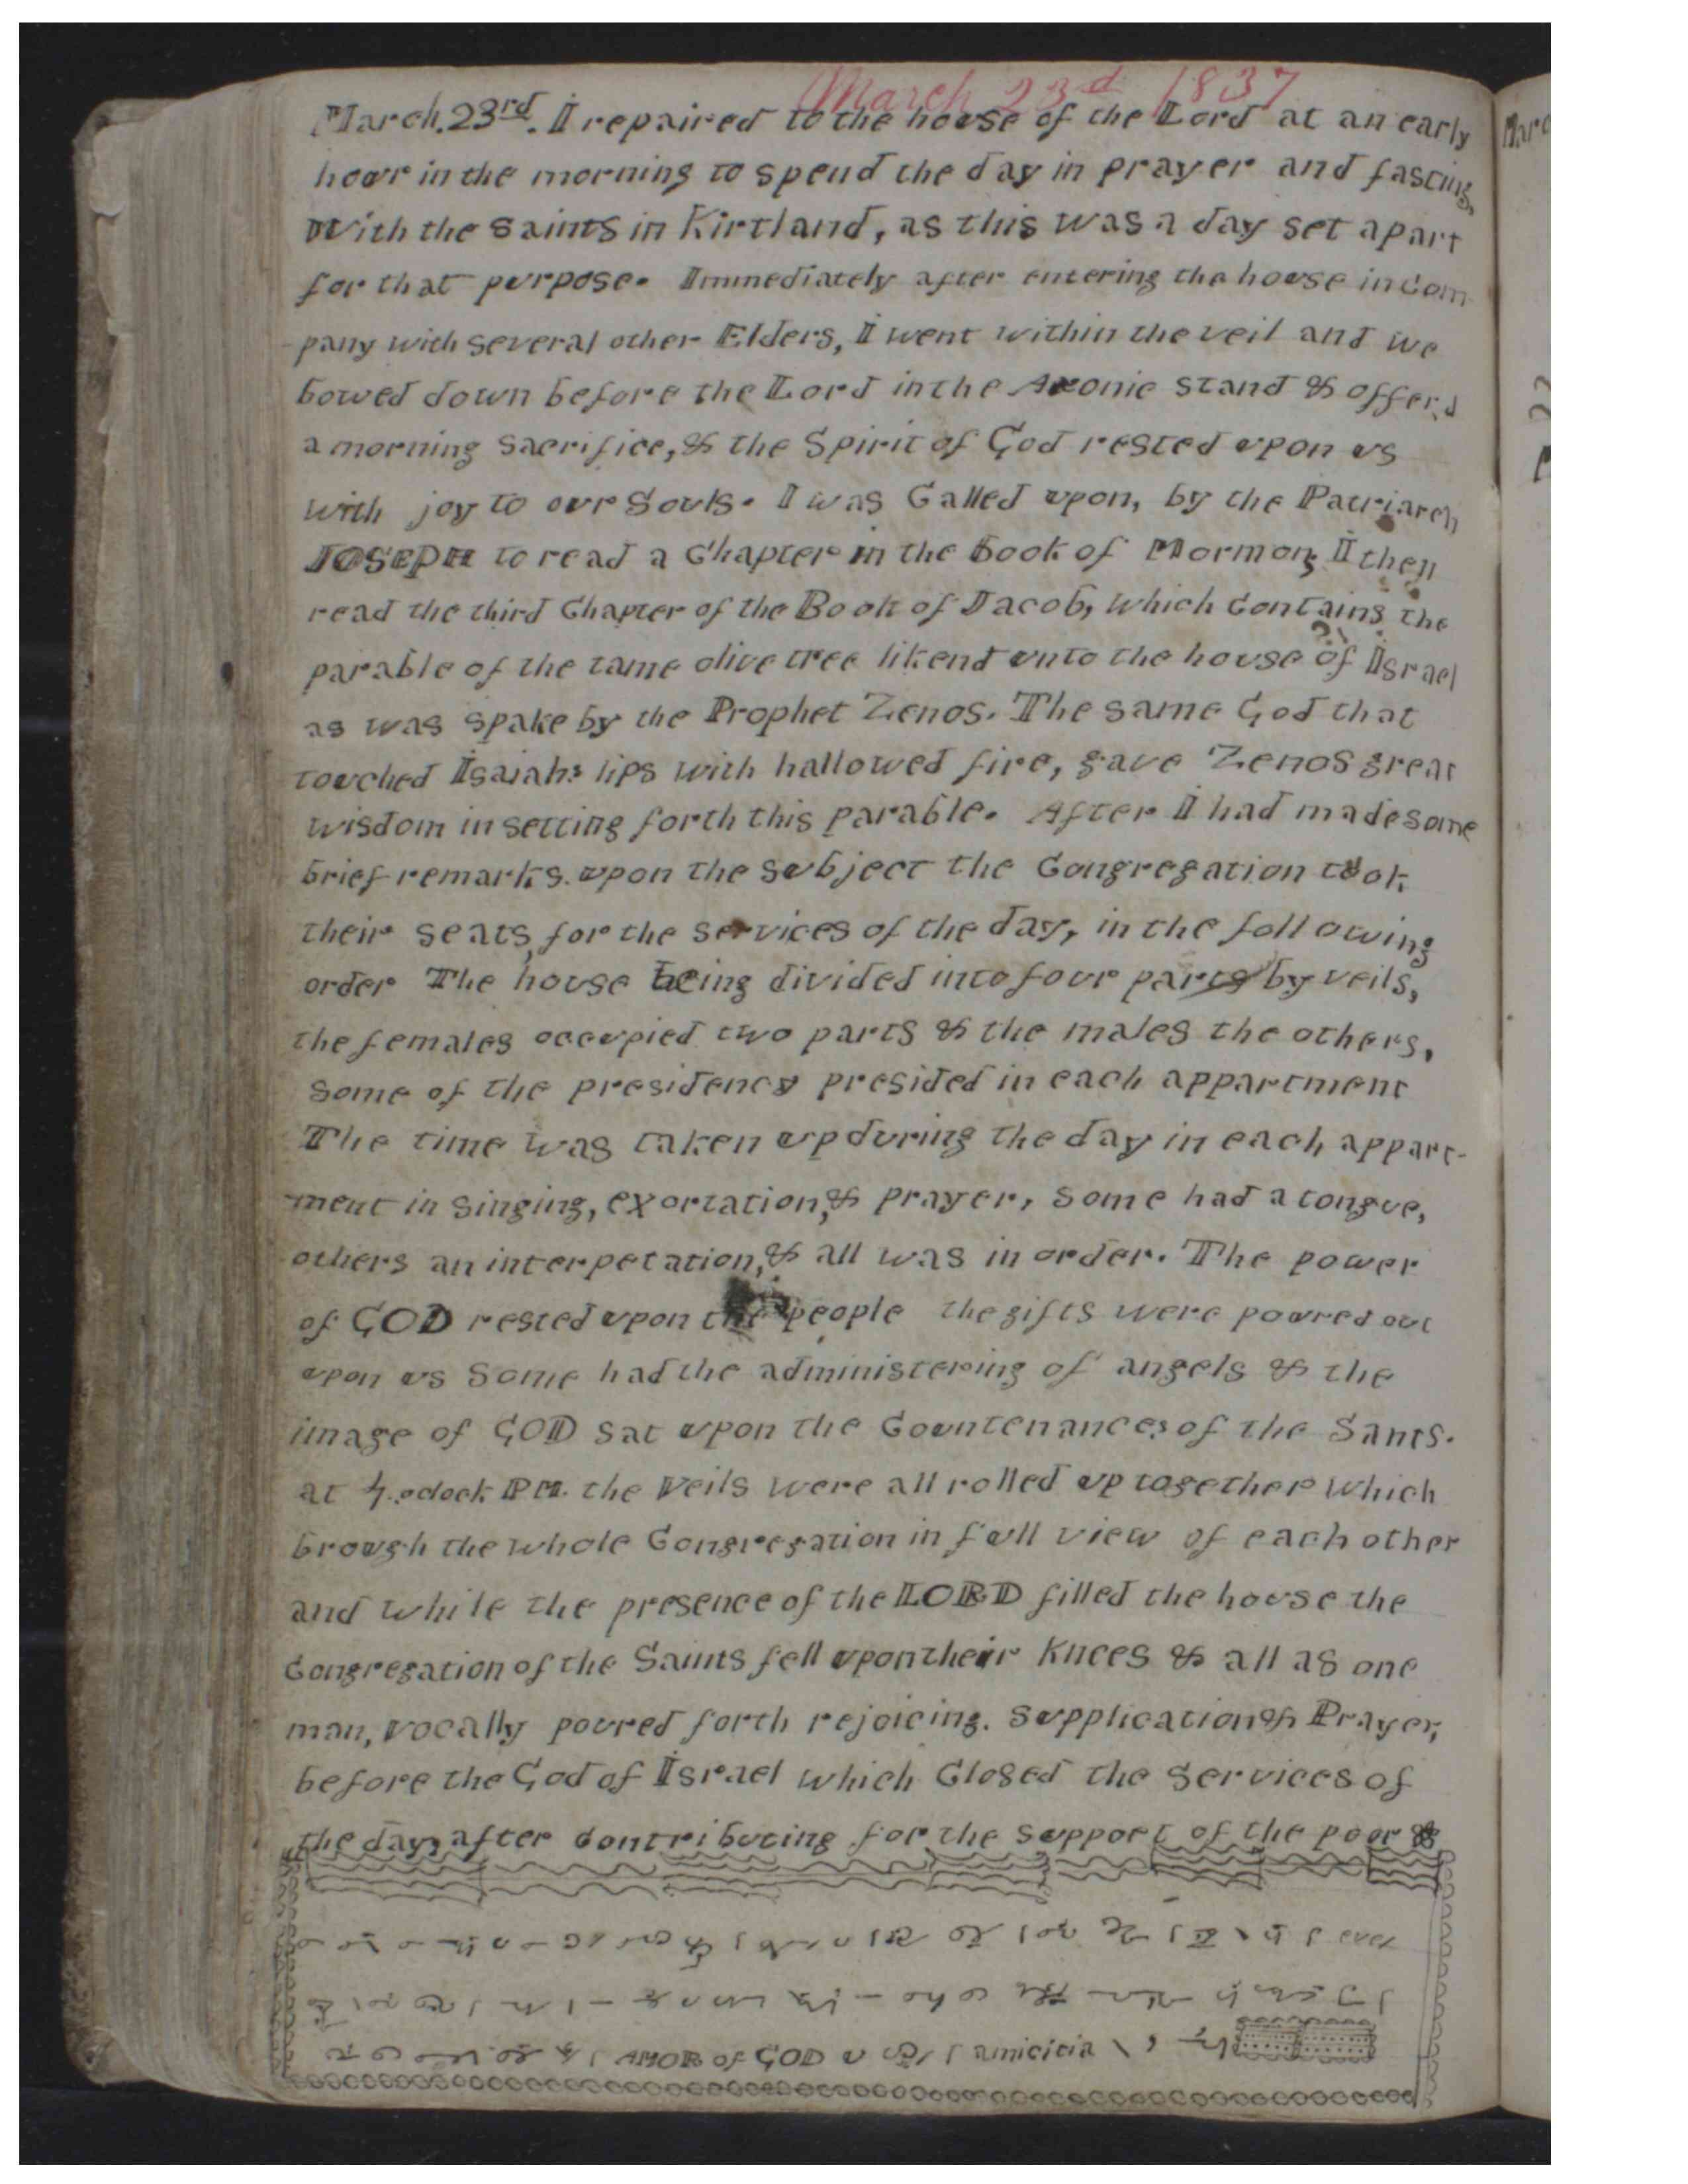 March 23d 1837
March. 23rd. I repaired to the house of the Lord at an early
hour in the morning to spend the day in prayer and fasting,
With the saints in Kirtland, as this was a day set apart
for that purpose. Immediately after entering the house in Com
pany with several other Elders, I went within the veil and we
bowed down before the Lord in the Aronic stand & offerd
a morning sacrifice, & the Spirit of God rested upon us
with joy to our Souls. I was Called upon, by the Patriarch
JOSEPH to read a Chapter in the Book of Mormon; I then
read the third Chapter of the Book of Jacob, which Contains the
parable of the tame olive tree likend unto the house of Israel
as was spake by the Prophet Zenos. The same God that
touched Isaiahs lips with hallowed fire, gave Zenos great
wisdom in setting forth this parable. After I had made some
brief remarks. upon the subject the Congregation took
their seats, for the services of the day, in the following
order The house being divided into four parts by veils,
the females occupied two parts & the males the others,
some of the presidency presided in each appartment
The time was taken up during the day in each appart-
ment in singing, exortation, & prayer, some had a tongue,
others an interpetation, & all was in order. The power
of GOD rested upon the people the gifts were poured out
upon us Some had the administering of angels & the
image of GOD sat upon the Countenances of the Sants.
at 4. oclock PM. the Veils were all rolled up together which
brough the whole Congregation in full view of each other
and while the presence of the LORD filled the house the
Congregation of the Saints fell upon their Knees & all as one
man, vocally poured forth rejoicing. supplication & Prayer,
before the God of Israel which Closed the services of
the day, after Contributing for the support of the poor &
AMOR of GOD amicitia